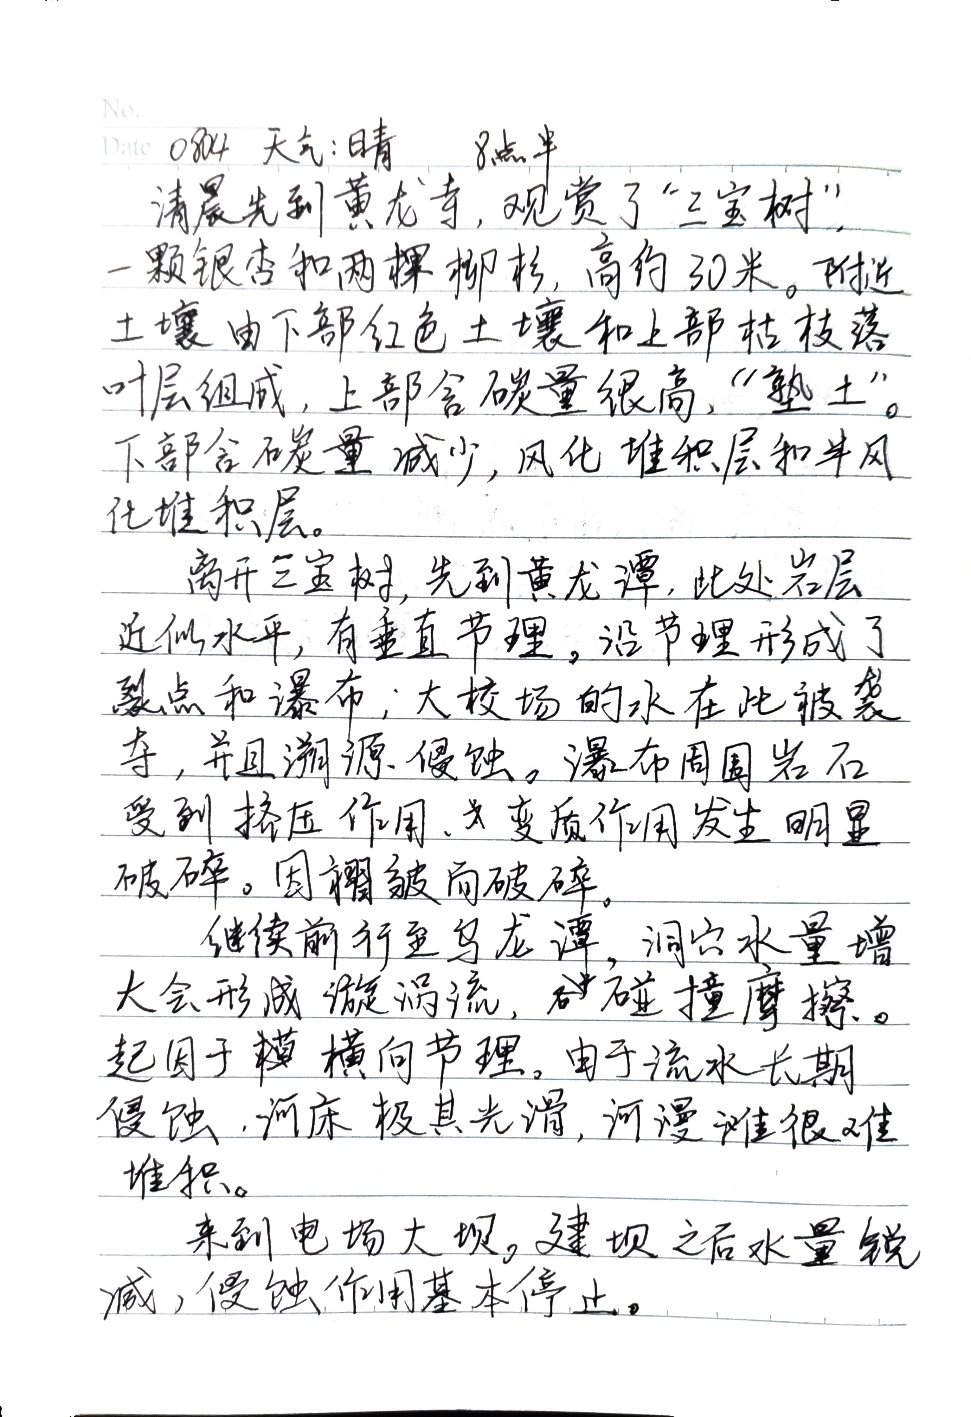 No.
Date 0804 天气:晴 8点半
清晨先到黄龙寺,观赏了“三宝树”,
一颗银杏和两棵柳杉,高约30米。附近
土壤由下部红色土壤和上部枯枝落
叶层组成,上部含碳量很高,“塾土”。
下部含碳量减少,风化堆积层和半风
化堆积层。
离开三宝树,先到黄龙潭,此处岩层
近似水平,有垂直节理。沿节理形成了
裂点和瀑布;大校场的水在此被袭
夺,并且溯源侵蚀。瀑布周围岩石
受到挤压作用、变质作用发生明显
破碎。因褶皱而破碎。
继续前行至乌龙潭。洞穴水量增
大会形成漩涡流,碰撞摩擦。
起因于横向节理。由于流水长期
侵蚀,河床极其光滑,河漫滩很难
堆积。
来到电场大坝。建坝之后水量锐
减,侵蚀作用基本停止。